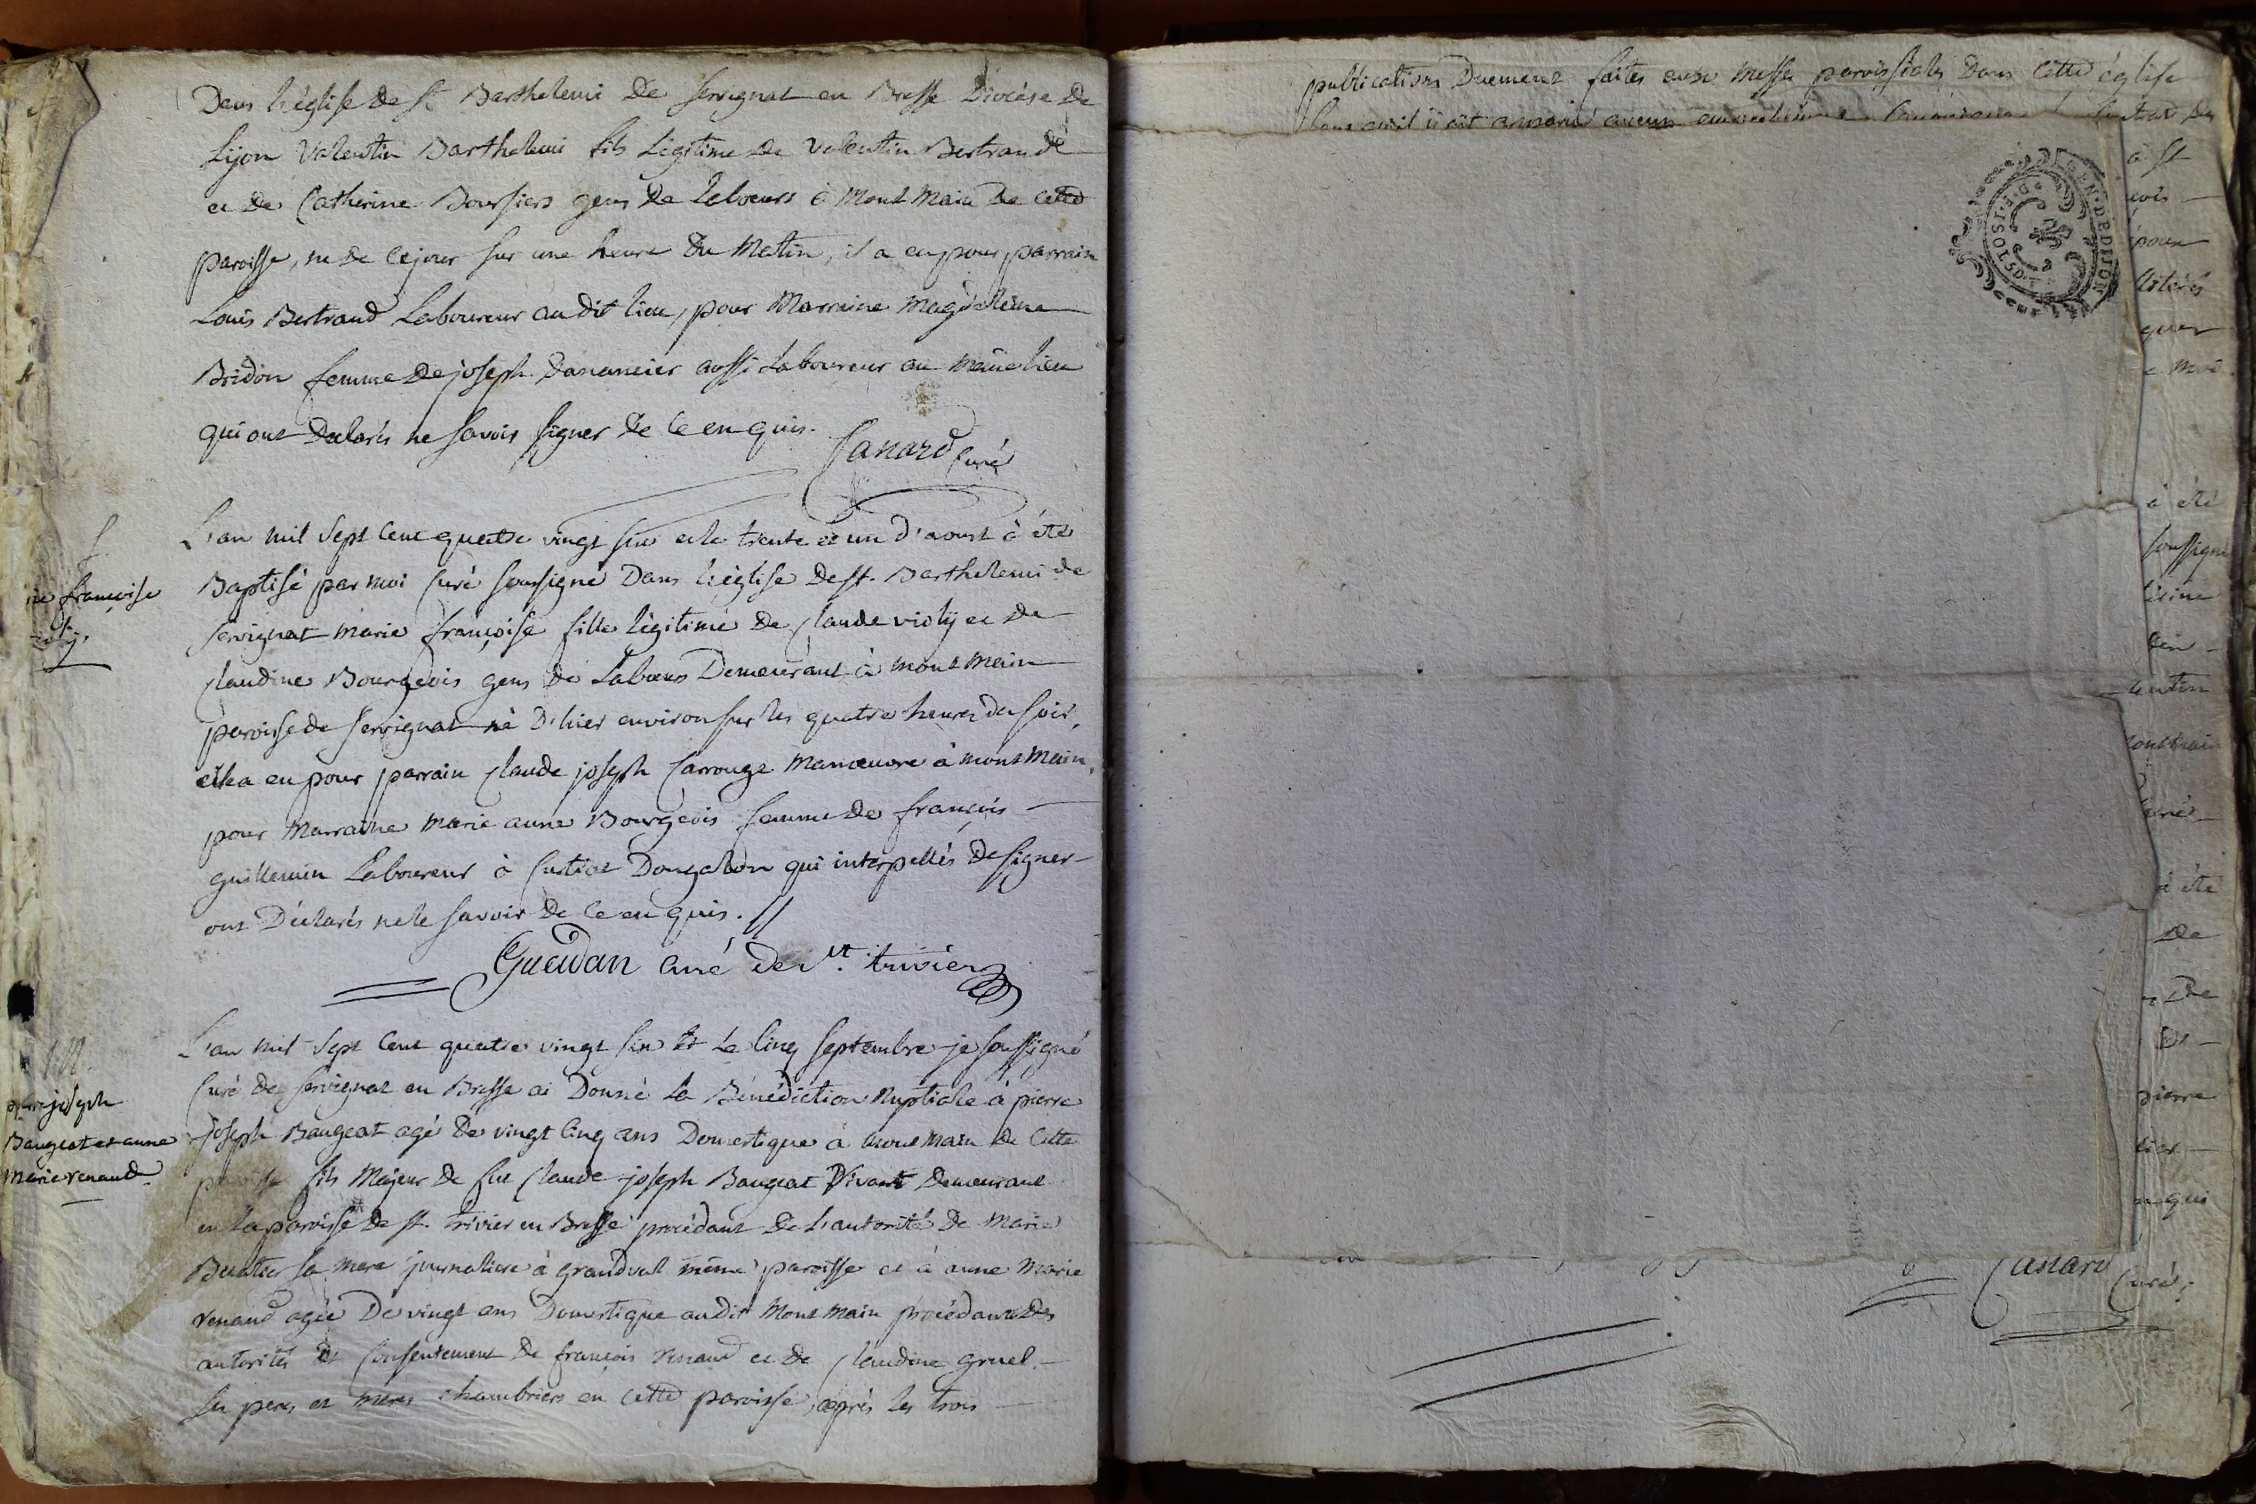 Dans l'église de St Barthelemi de Servignat en Bresse Diocèse de
Lijon Valentin Barthelemi fils Légitime de Valentin Bertrand
et de Catherine Boursiers gens de Laboeurs à Montmain de cette
paroisse, né de ce jour sur une heure du Matin, il a eu pour parrain
Louis Bertrand Laboureur au dit lieu, pour Marraine Magdeleine
Bridon femme de joseph Danancier aussi Laboureur au même lieu
qui ont Déclarés ne savoir signer de ce enquis.
Canard Curé
L'an mil sept cent quatre vingt six et le trente et un d'aoust à été
Baptisé par moi Curé soussigné Dans l'église de St. Barthelemi de
Servignat marie françoise fille légitime de Claude violy et de
Claudine Bourgeois gens de Laboeurs Demeurant à montmain
paroisse de Servignat né D'hier environ sur les quatre heures du soir,
elle a eu pour parrain Claude joseph Carrouge Manoeuvre à mont Main,
pour Marraine marie anne Bourgeois femme de françois
guillemin Laboureur à Curtiat Dongalon qui interpellés de signer
ont Déclarés ne le savoir de ce enquis. //
Gueidan curé de St. trivier
L'an mil sept cent quatre vingt six et Le cinq septembre je soussigné
Curé de Servignat en Bresse ai Donné La Bénédiction Nuptiale à pierre
joseph Baugeat agé de vingt cinq ans Domestique à mont main de cette
paroisse fils Majeur de feu Claude joseph Baugeat Vivant Demeurant
en la paroisse de St. Trivier en Bresse procédant de L'autorité de Marie
sa mere journaliere à grandval même paroisse et à anne Marie
renaud agée De vingt ans Domestique audit Mont main procédant des
autorités et Consentement de françois renaud et de Claudine gruel
ses peres et meres chambriers en cette paroisse, après les trois
françoise
pierre joseph
Baugeat et anne
Marie renaud
publications Duement faites aux messes paroissiales Dans cette église
à St
pour
quer
à été
soussigné
lentin
à été
De
De
pierre
qui
Canard Curé
GEN. DE DIJON